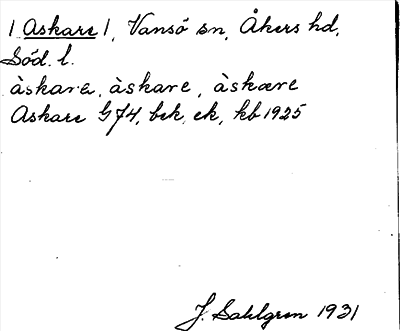 | Askare |, Vansö sn, Åkers hd,
Söd. l.
àskara, àskare, àskære
Askare G74, bek, ek, kb 1925
J. Sahlgren 1931